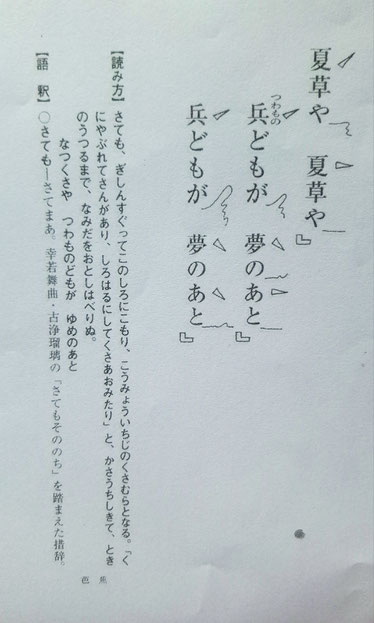 夏草や 夏草や
兵どもが 夢のあと
つわもの
兵どもが 夢のあと
【読み方】さても、ぎしんすぐってこのしろにこもり、こうみょういちじのくさむらとなる。「く
にやぶれてさんがあり、しろはるにしてくさあおみたり」と、かさうちしきて、とき
のうつるまで、なみだをおとしはべりぬ。
なつくさや つわものどもが ゆめのあと
【語釈】○さても―さてまあ。幸若舞曲・古浄瑠璃の「さてもそののち」を踏まえた措辞。
芭蕉